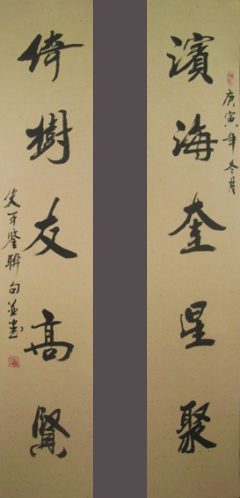 庚寅年冬月
濱海奎星聚
倚樹友高賢
聯句並書